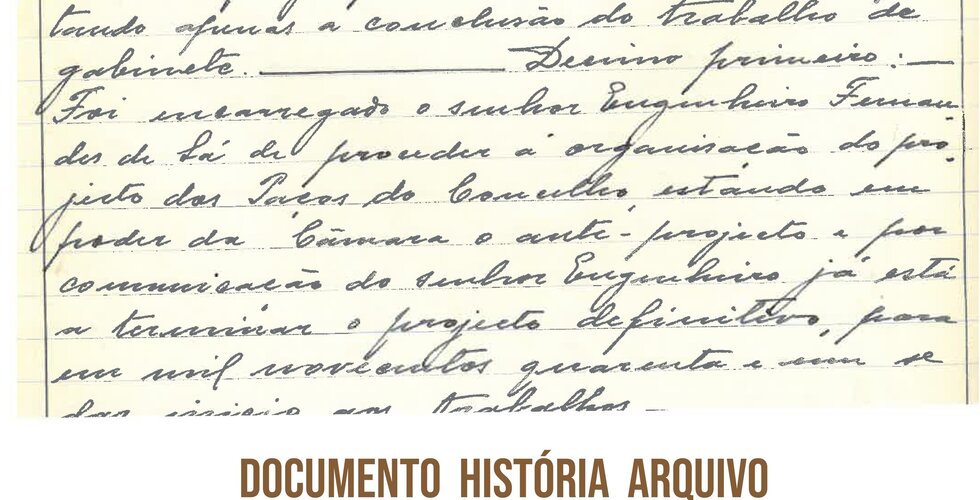 tando apenas a conclusão do trabalho de
gabinete. ——— Decimo primeiro: —
Foi encarregado o senhor Engenheiro Fernan-
des de Sá de proceder á organisação do pro-
jecto dos Paços do Concelho, estando em
poder da Câmara o ante-projecto e por
comunicação do senhor Engenheiro já está
a terminar o projecto definitivo, para
em mil novecentos quarenta e um se
dar inicio aos trabalhos. —
DOCUMENTO HISTÓRIA ARQUIVO